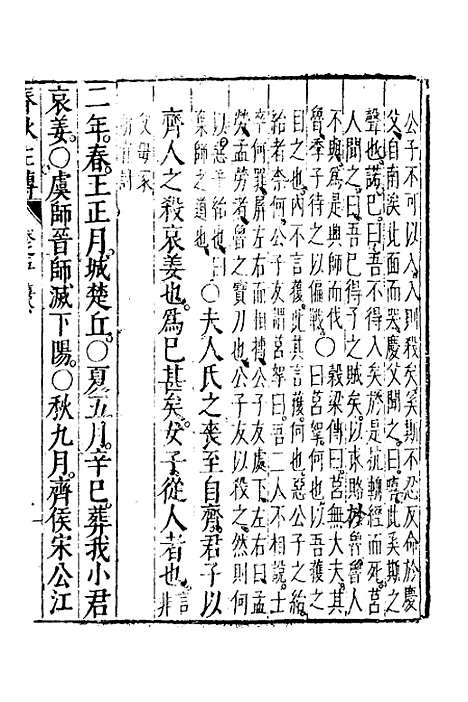 公子不可以入入則殺矣奚斯不忍反命於慶
父自南涘北面而哭慶父聞之曰嘻此奚斯之
聲也諾已曰吾不得入矣於是抗輈經而死莒
人聞之曰吾已得子之賊矣以求賂於魯魯人
不與爲是興師而伐○穀梁傳曰莒無大夫其
魯季子待之以偏戰○曰莒挐何也以吾獲之
目之也内不言獲此其言獲何也惡公子之紿
紿者奈何公子友謂莒挐曰吾二人不相說士
卒何罪屏左右而相搏公子友處下左右曰孟
勞孟勞者魯之寶刀也公子友以殺之然則何
以惡乎紿也曰
棄師之道也○夫人氏之喪至自齊君子以
齊人之殺哀姜也爲已甚矣女子從人者也言非
父母家
所宜討
二年春王正月城楚丘○夏五月辛巳葬我小君
哀姜○虞師晉師滅下陽○秋九月齊侯宋公江
春秋左傳